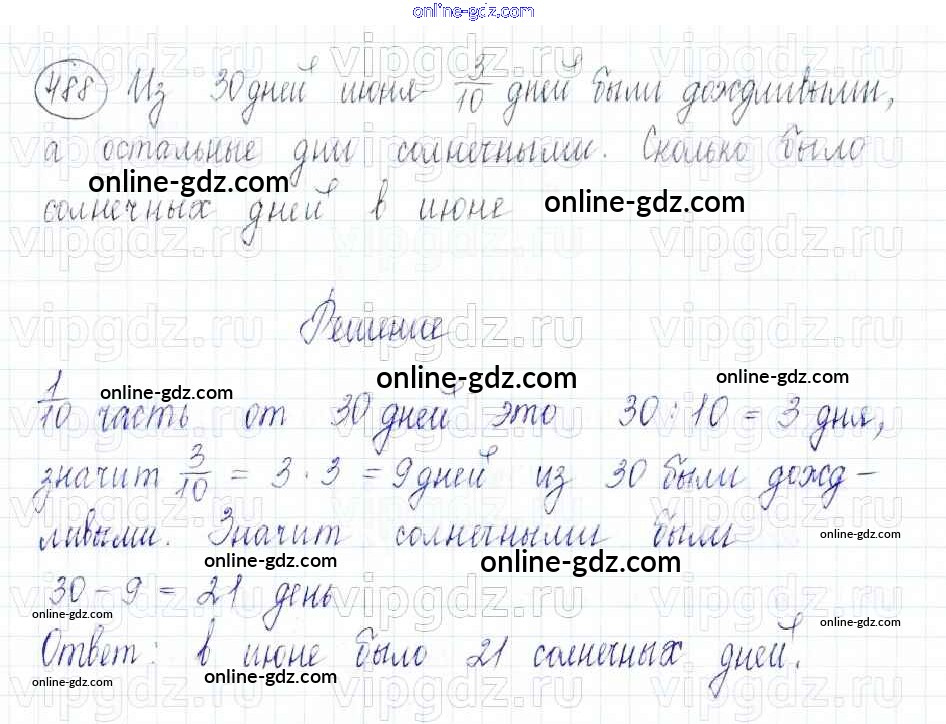 online-gdz.com
488 Из 30 дней июня 3/10 дней были дождливыми,
а остальные дни солнечными. Сколько было
online-gdz.com
солнечных дней в июне
online-gdz.com
vipgdz.ru vipgdz.ru vipgdz.ru
Решение
online-gdz.com online-gdz.com online-gdz.com
1/10 часть от 30 дней это 30 : 10 = 3 дня,
значит 3/10 = 3 · 3 = 9 дней из 30 были дожд-
ливыми. Значит солнечными были
online-gdz.com online-gdz.com online-gdz.com
30 - 9 = 21 день
online-gdz.com online-gdz.com
Ответ: в июне было 21 солнечных дней.
online-gdz.com online-gdz.com online-gdz.com